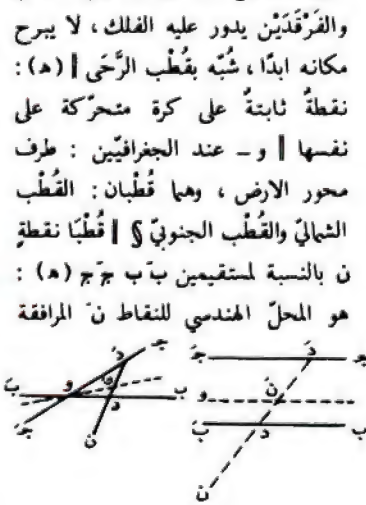 والفَرْقَدَيْن يدور عليه الفلك ، لا يبرح
مكانه ابدًا ، شُبّه بقُطْب الرَّحَى ‖ (ه) :
نقطةٌ ثابتةٌ على كرة متحرّكة على
نفسها ‖ و ــ عند الجغرافيّين : طرف
محور الارض ، وهما قُطْبان : القُطْب
الشماليّ والقُطْب الجنوبيّ § ‖ قُطْبَا نقطةٍ
ن بالنسبة لمستقيمين بَ ب جَ ج (ه) :
هو المحلّ الهندسي للنقاط نَ المرافقة
جـ دَ جَـ
و نَ
ب د بَ
ن
جـ دَ
بَ و ب
د
جَـ ن